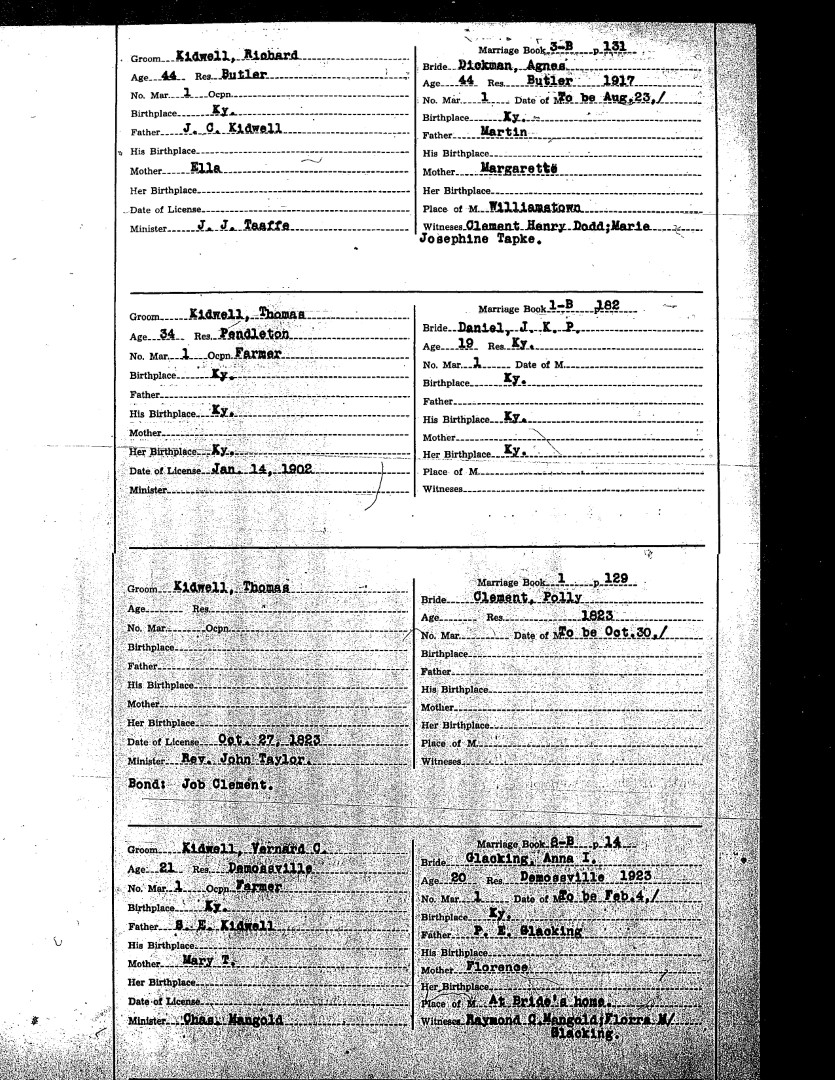 Groom Kidwell, Richard
Age 44 Res Butler
No. Mar. 1 Ocpn.
Birthplace Ky.
Father J. C. Kidwell
His Birthplace
Mother Ella
Her Birthplace
Date of License
Minister J. J. Taaffe
Marriage Book 3-B p 131
Bride Dickman, Agnes
Age 44 Res Butler 1917
No. Mar. 1 Date of M. To be Aug.23,/
Birthplace Ky.
Father Martin
His Birthplace
Mother Margarette
Her Birthplace
Place of M. Williamstown
Witneses Clement Henry Dodd;Marie
Josephine Tapke.
Groom Kidwell, Thomas
Age 34 Res Pendleton
No. Mar. 1 Ocpn. Farmer
Birthplace Ky.
Father
His Birthplace Ky.
Mother
Her Birthplace Ky.
Date of License Jan. 14, 1902
Minister
Marriage Book 1-B p 182
Bride Daniel, J. K. P.
Age 19 Res Ky.
No. Mar. 1 Date of M.
Birthplace Ky.
Father
His Birthplace Ky.
Mother
Her Birthplace Ky.
Place of M.
Witneses
Groom Kidwell, Thomas
Age Res
No. Mar. Ocpn.
Birthplace
Father
His Birthplace
Mother
Her Birthplace
Date of License Oct. 27, 1823
Minister Rev. John Taylor.
Bond: Job Clement.
Marriage Book 1 p 129
Bride Clement, Polly
Age Res 1823
No. Mar. Date of M. To be Oct.30,/
Birthplace
Father
His Birthplace
Mother
Her Birthplace
Place of M.
Witneses
Groom Kidwell, Vernard C.
Age 21 Res Demossville
No. Mar. 1 Ocpn. Farmer
Birthplace Ky.
Father S. E. Kidwell
His Birthplace
Mother Mary T.
Her Birthplace
Date of License
Minister Chas. Mangold
Marriage Book p 14
Bride Glacking, Anna I.
Age 20 Res Demossville 1923
No. Mar. 1 Date of M. To be Feb.4,/
Birthplace Ky.
Father P. E. Glacking
His Birthplace
Mother Florence
Her Birthplace
Place of M. At Bride's home.
Witneses Raymond C.Mangold;Florra M/
Glacking.